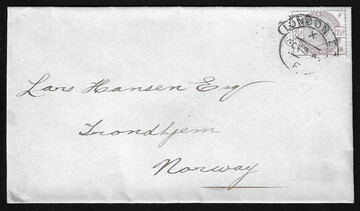 LONDON E
X
F
Lars Hansen Esq
Trondhjem
Norway